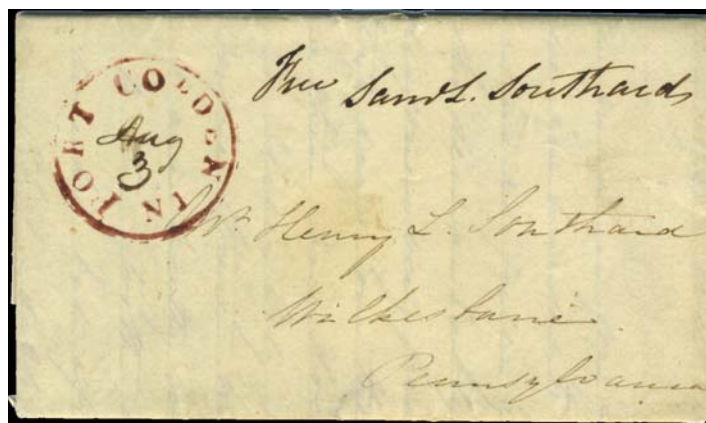 PORT COLDEN NJ
Aug
3
Free Saml L. Southard
Mr Henry L. Southard
Wilkesbarre
Pennsylvania